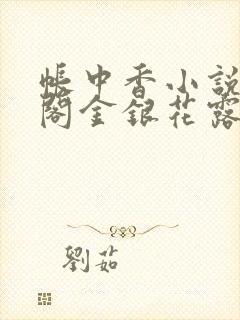 帳中香小説
閣金銀花露
劉茹